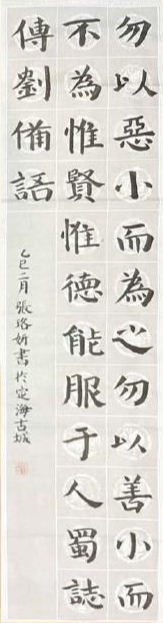 勿以惡小而為之勿以善小而
不為惟賢惟德能服于人蜀誌
傳劉備語
乙巳二月張珞妍書於定海古城